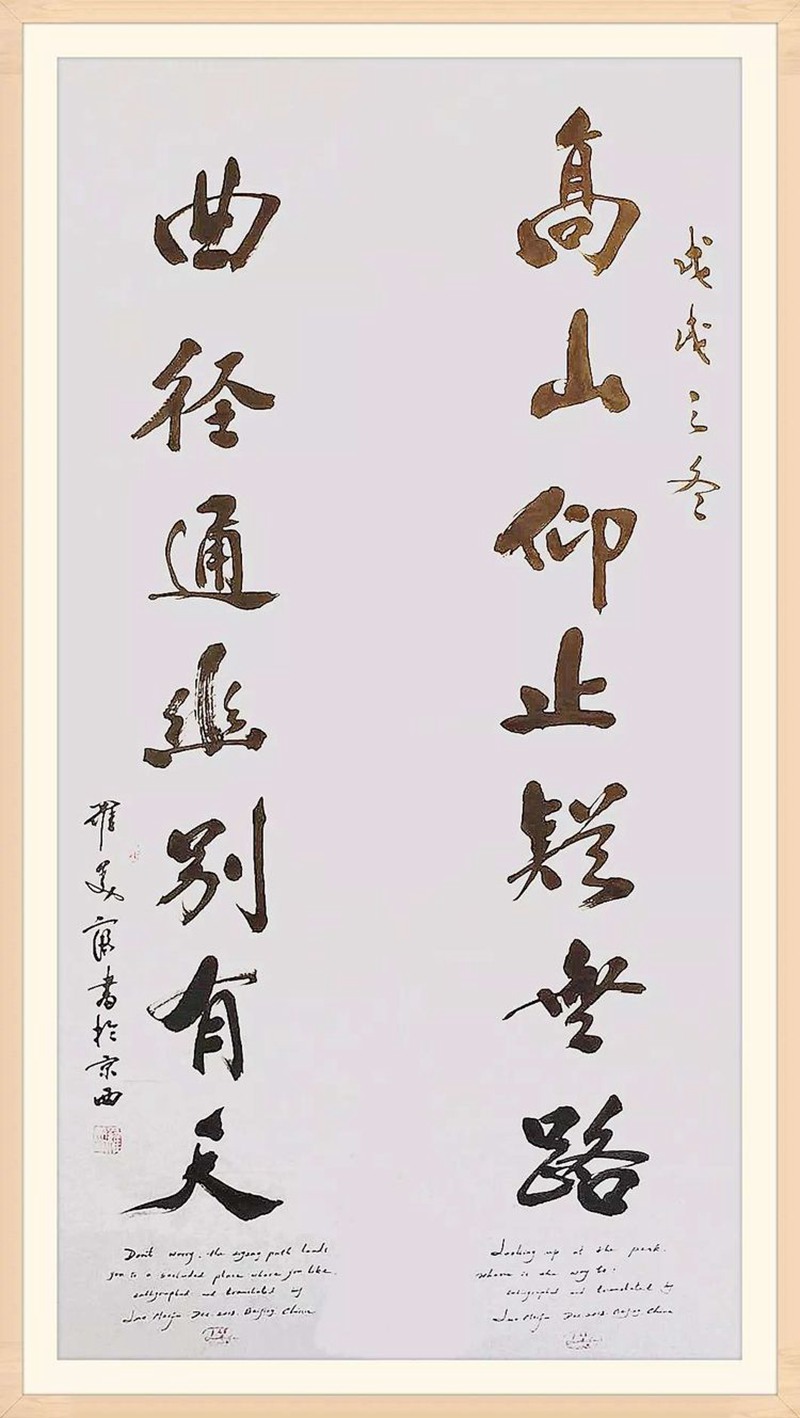 戊戌之冬
高山仰止疑無路
曲径通幽别有天
羅美書於京西
Looking up at the peak.
Where is the way to?
calligraphed and translated by
Dec. 2018. Beijing. China
Don't worry, the zigzag path leads
you to a secluded place where you like.
calligraphed and translated by
Dec. 2018. Beijing. China